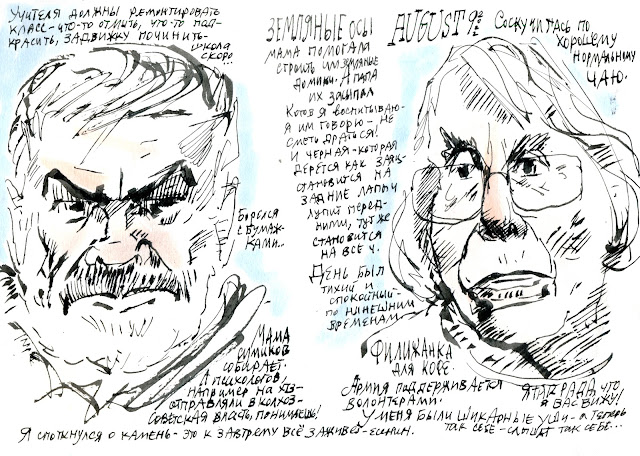 УЧИТЕЛЯ ДОЛЖНЫ РЕМОНТИРОВАТЬ
КЛАСС-ЧТО-ТО ОТМЫТЬ, ЧТО-ТО ПОД-
КРАСИТЬ, ЗАДВИЖКУ ПОЧИНИТЬ-
ШКОЛА
СКОРО
ЗЕМЛЯНЫЕ ОСЫ
МАМА ПОМОГАЛА
СТРОИТЬ ИМ ЗЕМЛЯНЫЕ
ДОМИКИ. А ПАПА
ИХ ЗАСЫПАЛ
КОТОВ Я ВОСПИТЫВАЮ-
Я ИМ ГОВОРЮ- НЕ
СМЕТЬ ДРАТЬСЯ!
И ЧЕРНАЯ-КОТОРАЯ
ДЕРЁТСЯ КАК ЗАЯЦ-
СТАНОВИТСЯ НА
ЗАДНИЕ ЛАПЫ И
ЛУПИТ ПЕРЕД-
НИМИ, ТУТ ЖЕ
СТАНОВИТСЯ
НА ВСЕ 4.
ДЕНЬ БЫЛ
ТИХИЙ И
СПОКОЙНЫЙ-
ПО НЫНЕШНИМ
ВРЕМЕНАМ
AUGUST 9
СОСКУЧИЛАСЬ ПО
ХОРОШЕМУ
НОРМАЛЬНОМУ
ЧАЮ.
БОРОЛСЯ
С БУМАЖ-
КАМИ..
МАМА
СОБИРАЕТ.
А ПСИХОЛОГОВ
НАПРИМЕР НА ХТЗ-
ОТПРАВЛЯЛИ В КОЛХОЗ-
СОВЕТСКАЯ ВЛАСТЬ, ПОНИМАЕШЬ!
ФИЛИЖАНКА
ДЛЯ КОФЕ.
АРМИЯ ПОДДЕРЖИВАЕТСЯ
ВОЛОНТЕРАМИ.
Я ТАК РАДА, ЧТО
Я ВАС ВИЖУ!
У МЕНЯ БЫЛИ ШИКАРНЫЕ УШИ- А ТЕПЕРЬ
ТАК СЕБЕ-СЛЫШАТ ТАК СЕБЕ...
Я СПОТКНУЛСЯ О КАМЕНЬ-ЭТО К ЗАВТРЕМУ ВСЁ ЗАЖИВЁТ-ЕСЕНИН.